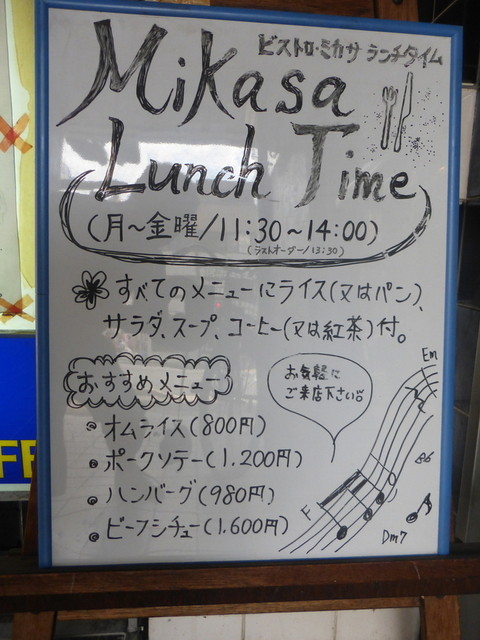 ビストロ・ミカサ ランチタイム
Mikasa
Lunch Time
(月~金曜/11:30~14:00)
(ラストオーダー/13:30)
すべてのメニューにライス(又はパン)、
サラダ、スープ、コーヒー(又は紅茶)付。
おすすめメニュー
お気軽に
ご来店下さい
オムライス(800円)
ポークソテー(1.200円)
ハンバーグ(980円)
ビーフシチュー(1.600円)
Em
F
Dm7
FF